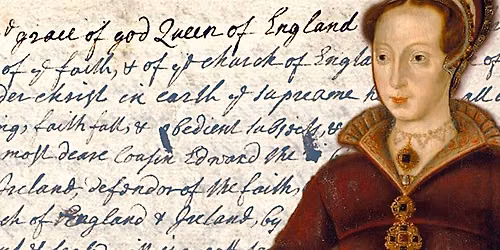 grace of god Queen of England
of yͤ faith, & of yͤ church of Engla
der christ in earth yͤ supreame h all
faith full, & obedient subjects,
most deare Cousin Edward the
Ireland, defendor of the faith,
ch of England & Ireland, by